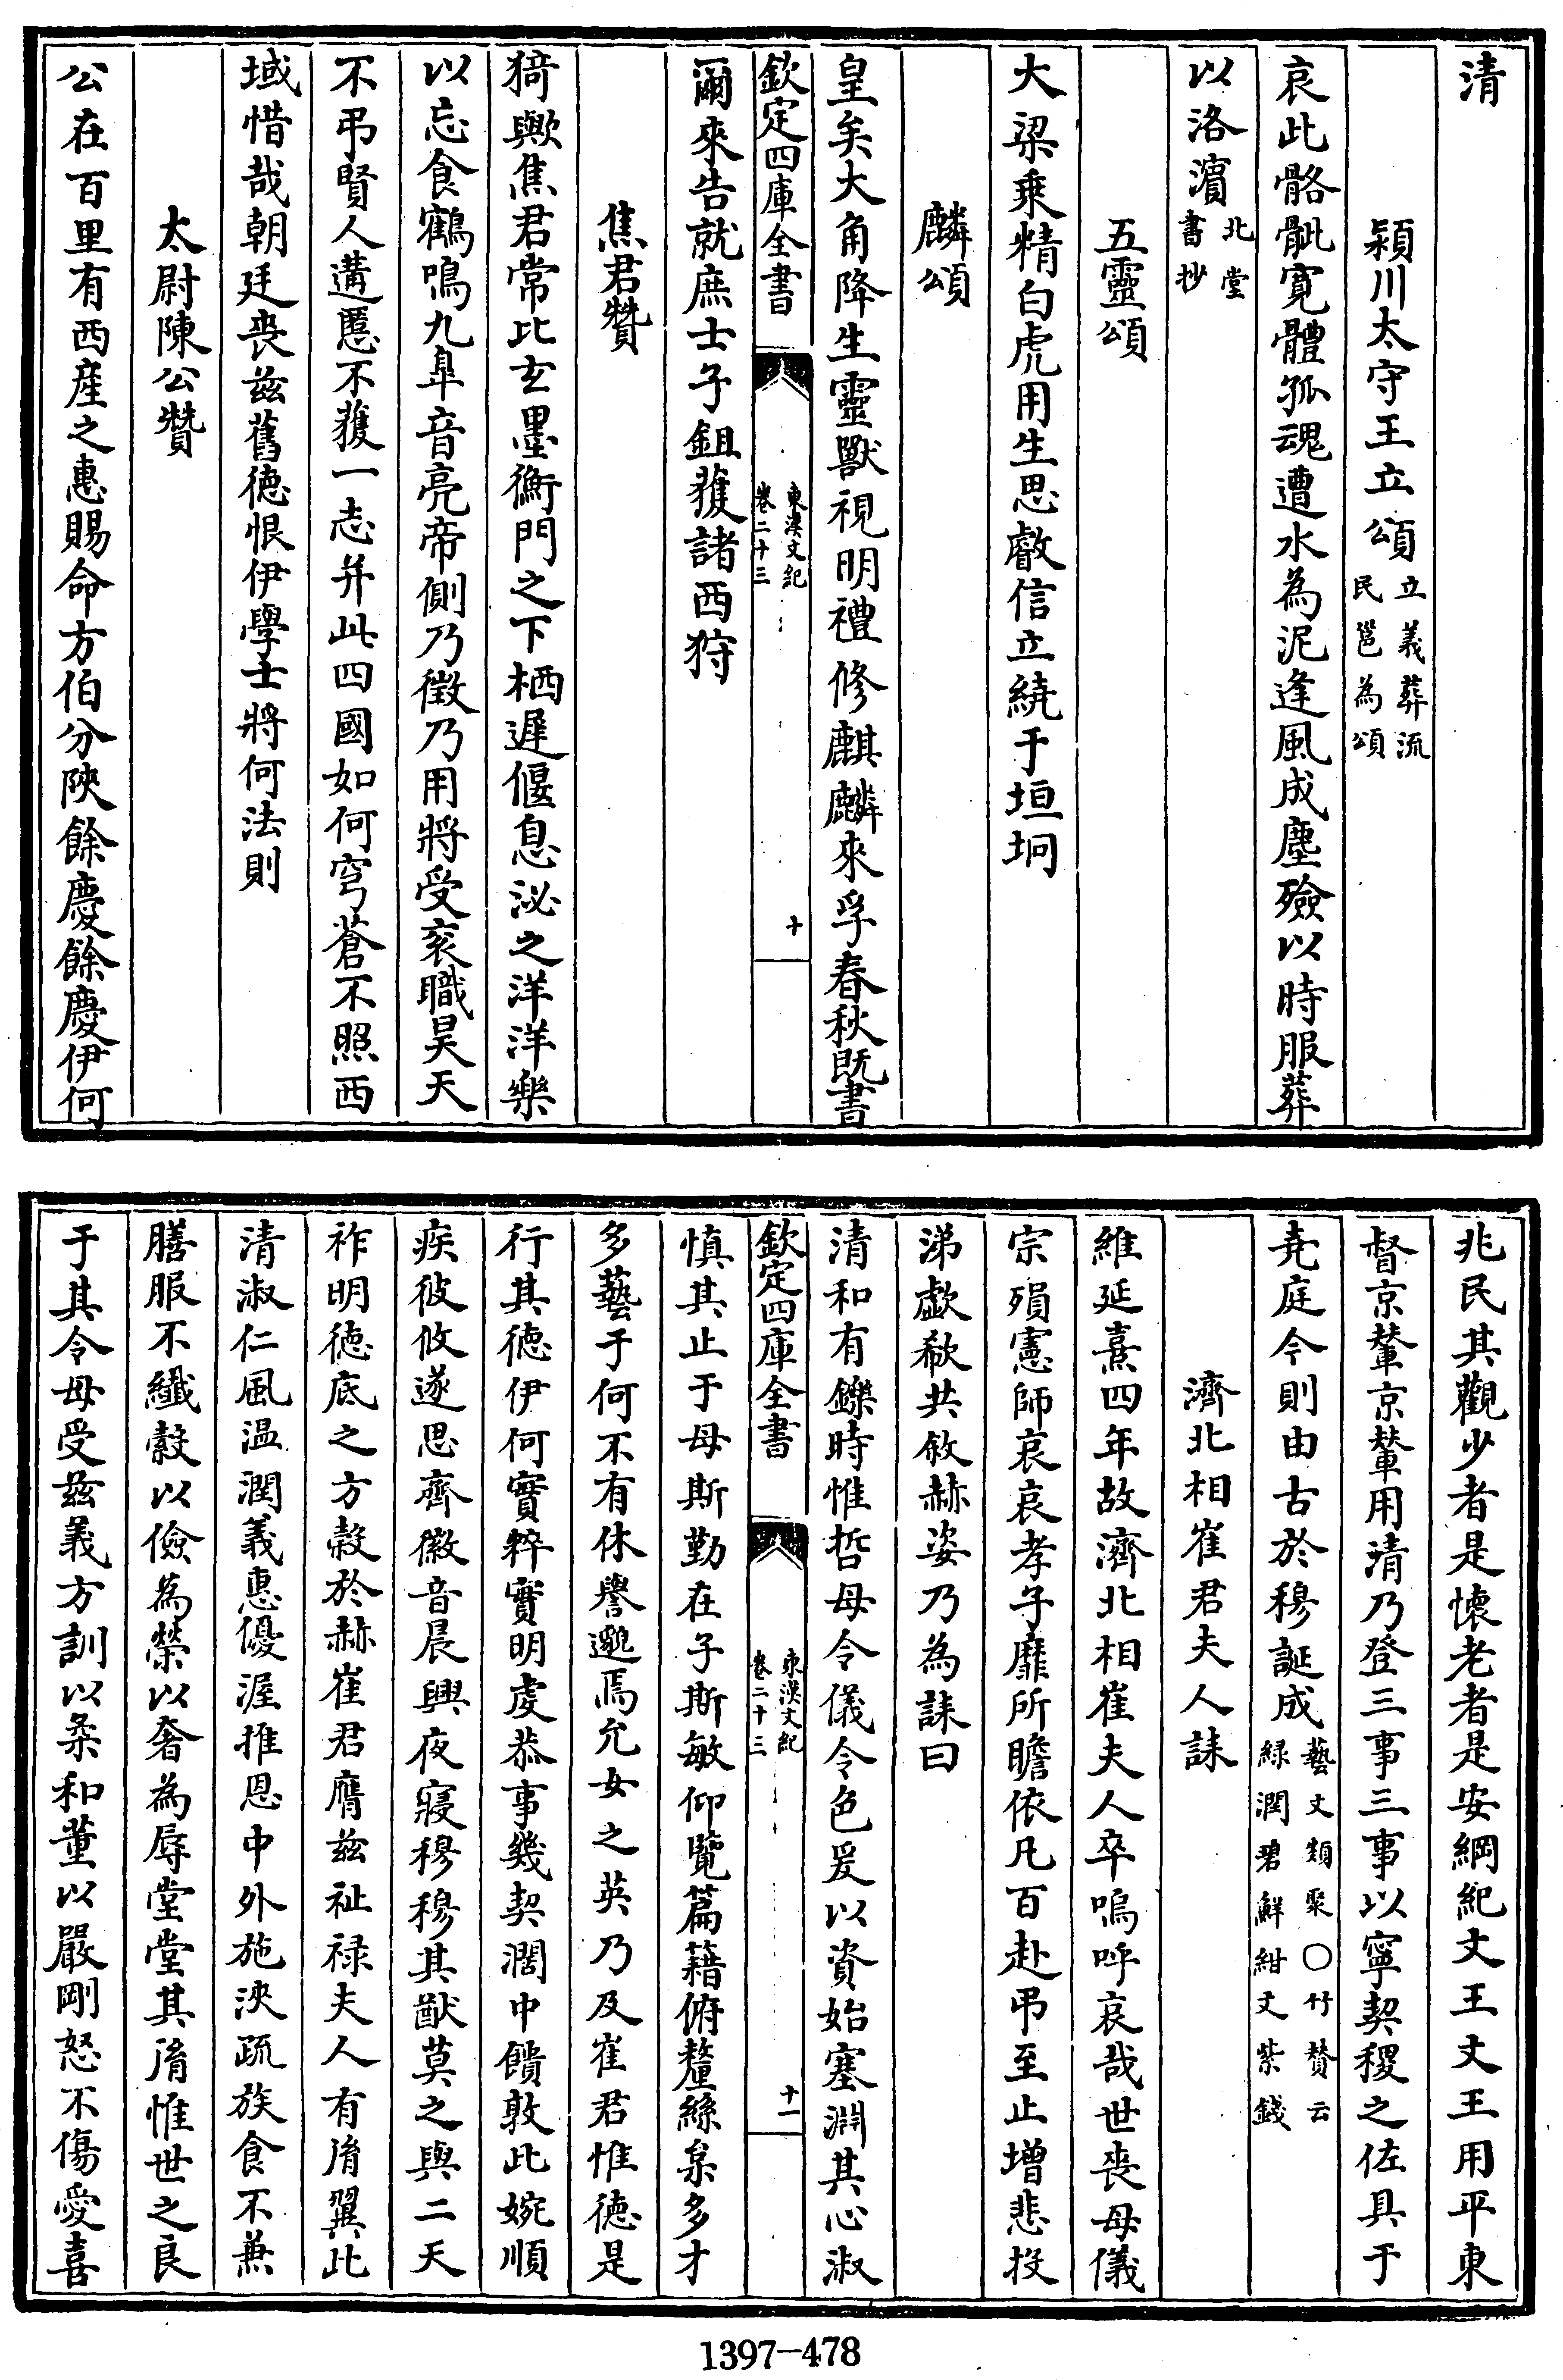 清
潁川太守王立頌立義葬流民邕為頌
哀此骼骴寛體孤魂遭水為泥逢風成塵殮以時服葬
以洛濵北堂書抄
五靈頌
大梁乗精白虎用生思叡信立繞于垣坰
麟頌
皇矣大角降生靈獸視明禮修麒麟來孚春秋既書
欽定四庫全書
東漢文紀
卷二十三
十
爾來告就庶士子鉏獲諸西狩
焦君贊
猗歟焦君常比玄墨衡門之下栖遲偃息泌之洋洋樂
以忘食鶴鳴九臯音亮帝側乃徵乃用將受衮職昊天
不弔賢人遘慝不獲一志并此四國如何穹蒼不照西
域惜哉朝廷丧兹舊徳恨伊學士將何法則
太尉陳公贊
公在百里有西産之惠賜命方伯分陜餘慶餘慶伊何
兆民其觀少者是懐老者是安綱紀文王文王用平東
督京輦京輦用清乃登三事三事以寧契稷之佐具于
尭庭今則由古於穆誕成藝文類聚○竹賛云緑潤碧鮮紺文紫錢
濟北相崔君夫人誄
維延熹四年故濟北相崔夫人卒嗚呼哀哉世丧母儀
宗殞憲師哀哀孝子靡所瞻依凡百赴弔至止增悲投
涕歔欷共敘赫姿乃為誄曰
清和有鑠時惟哲母令儀令色爰以資始塞淵其心淑
欽定四庫全書
東漢文紀
卷二十三
十一
慎其止于母斯勤在子斯敏仰覽篇藉俯釐絲枲多才
多藝于何不有休譽邈焉允女之英乃及崔君惟徳是
行其徳伊何實粹實明虔恭事幾契濶中饋敦此婉順
疾彼攸遂思齊徽音晨興夜寢穆穆其猷莫之與二天
祚明徳底之方榖於赫崔君膺兹祉禄夫人有㣧翼此
清淑仁風温潤義惠優渥推恩中外施浹疏族食不兼
膳服不纎縠以儉為榮以奢為辱堂堂其㣧惟世之良
于其令母受兹義方訓以柔和董以嚴剛怒不傷愛喜
1397—478